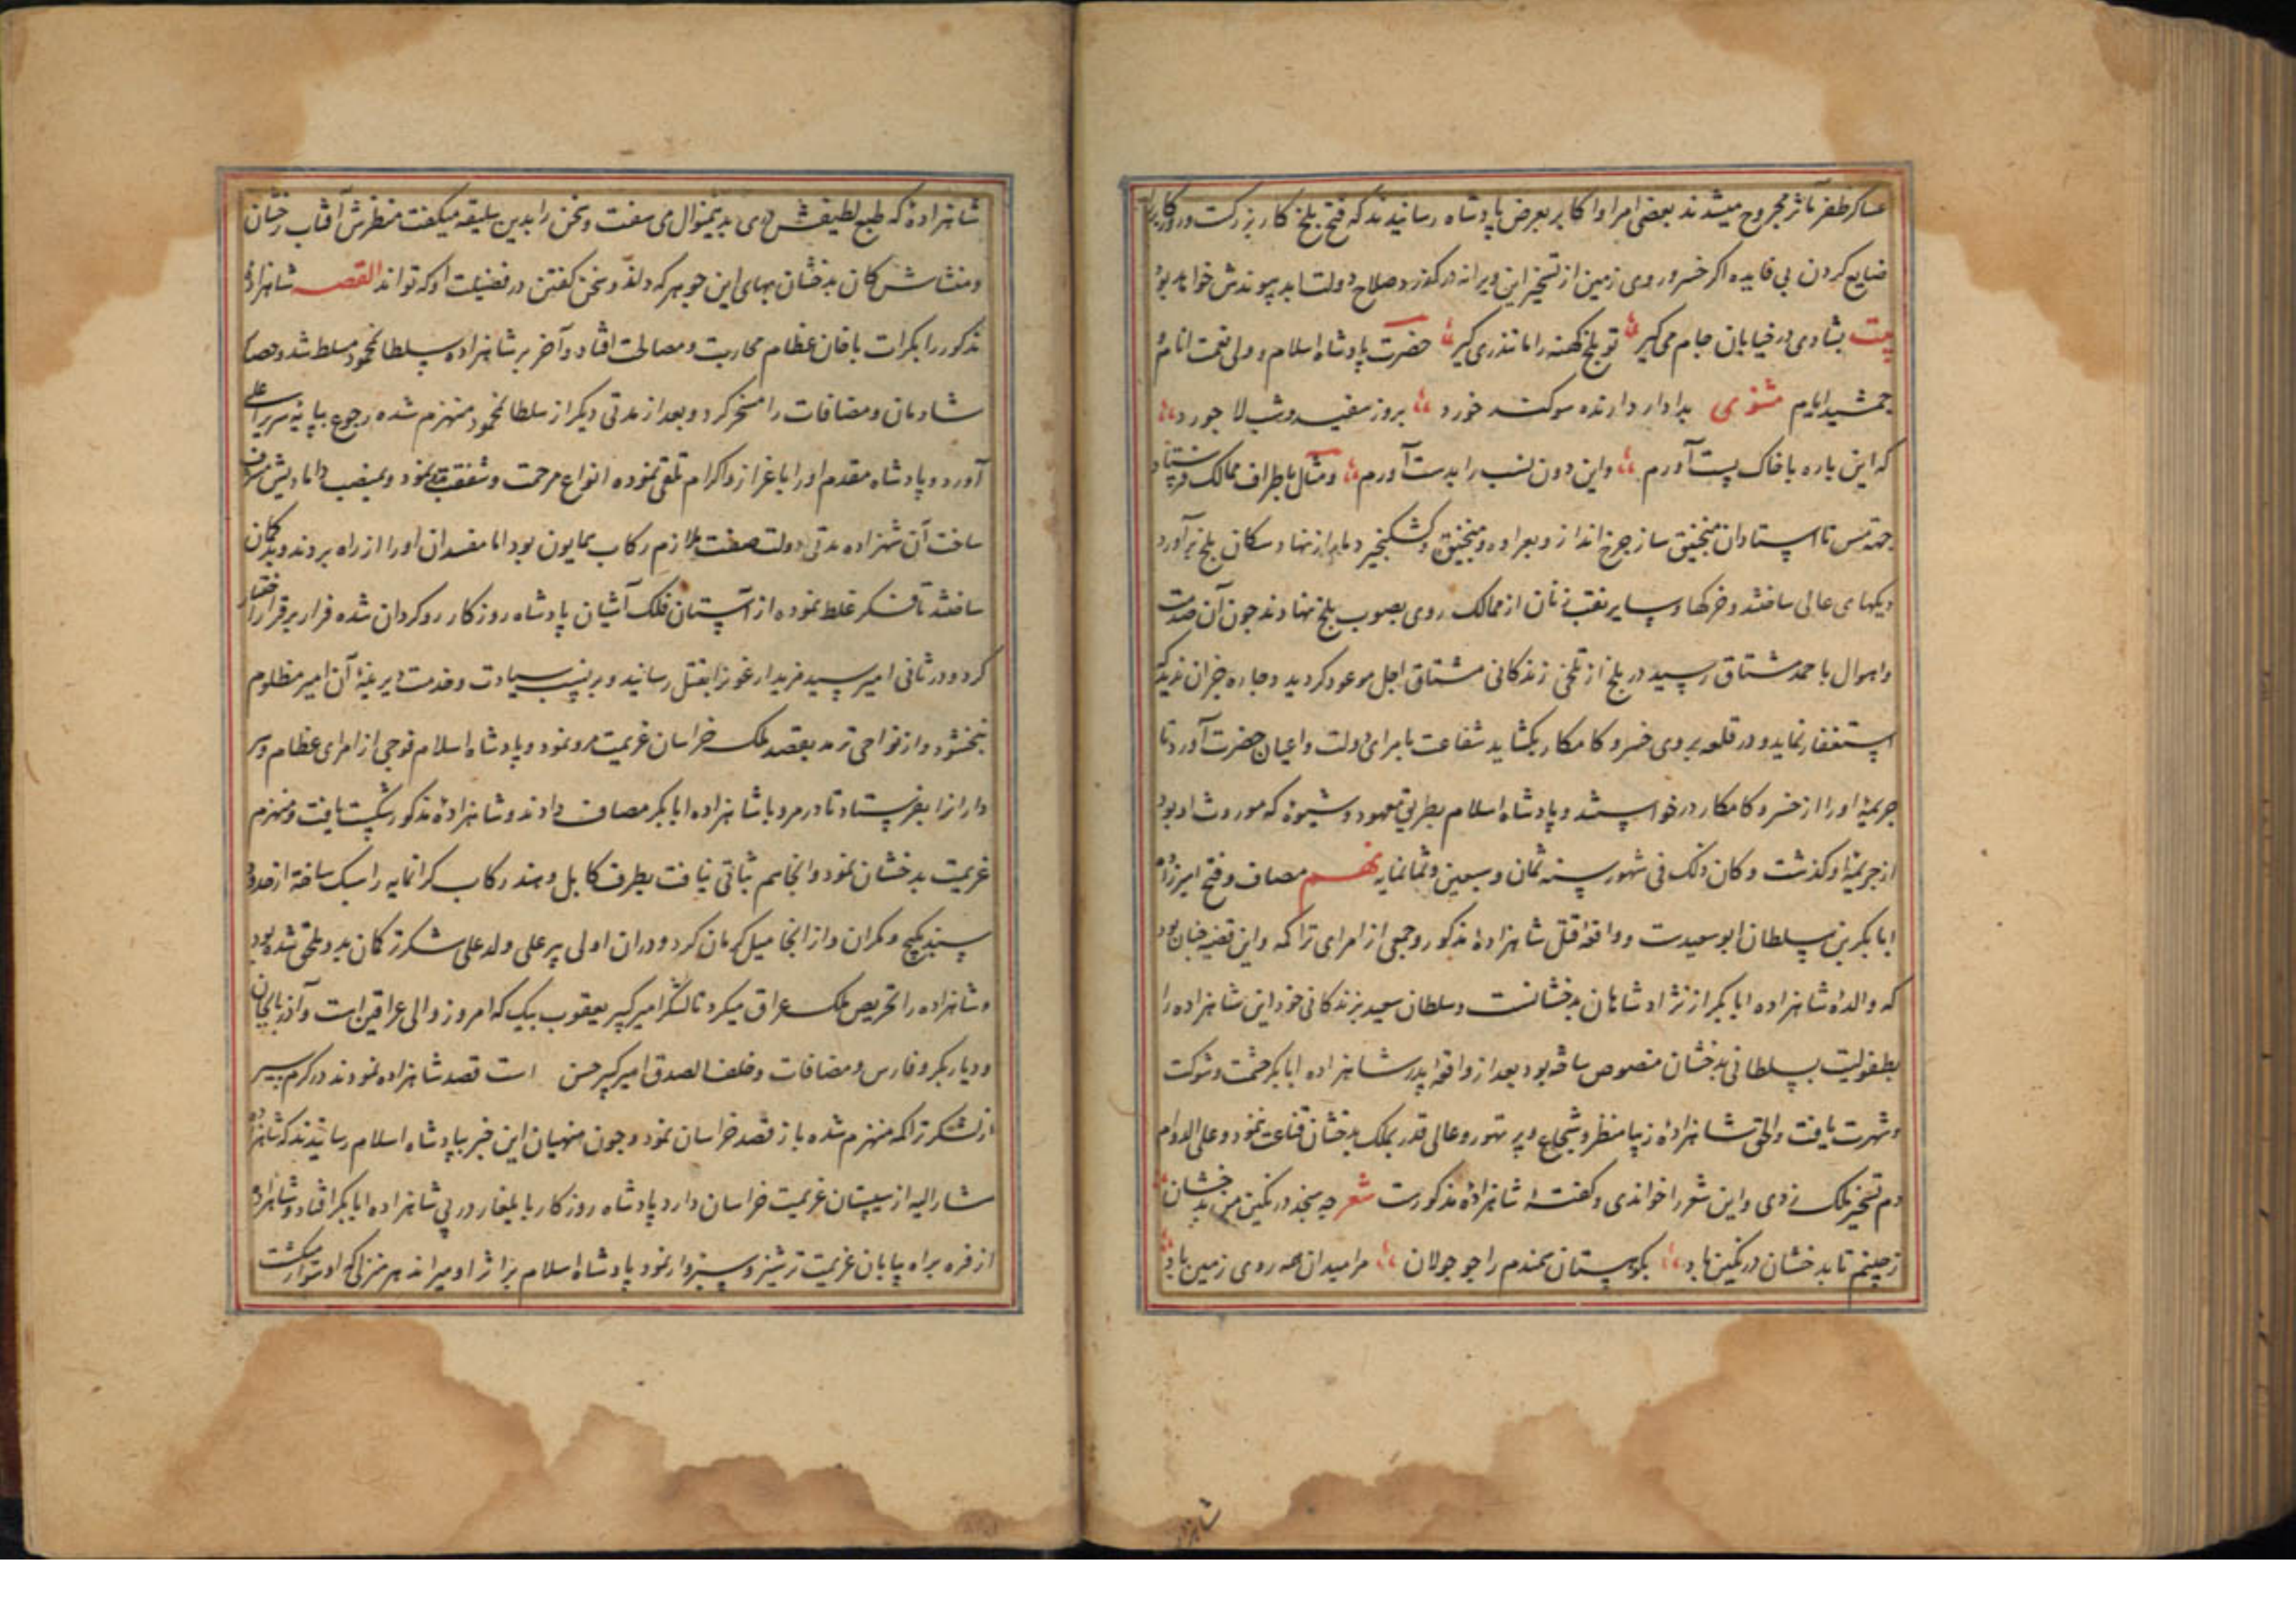 عساکر ظفر مآثر مجروح میشدند بعضی امرا و اکابر بعرض پادشاه رسانیدند که فتح بلخ کار بزرکست و روزکار
ضایع کردن بی فایده اکر خسرو روی زمین از تسخیر این ویرانه درکذرد صلاح دولت ابد پیوندش خواهد بود
بیت بشادی در خیابان جام می کیر تو بلخ کهنه را ماتندری کیر حضرت پادشاه اسلام و ولی نعمت انام
جمشید ایام مثنوی بدادار دارنده سوکند خورد بروز سفید و شب لاجورد
که این باره با خاک پست آورم واین دون نسب را بدست آورم و مثال باطراف ممالک فرستاد
تا استادان منجنیق ساز چرخ انداز و بعراده و منجنیق و کشکنجیر دمار از نهاد سکان بلخ برآورد
دیکهای عالی ساختند و خرکها و سایر نقب زنان از ممالک روی بصوب بلخ نهادند چون آن صدمت
واهوال با حمد مشتاق رسید در بلخ از تلخی زندکانی مشتاق اجل موعود کردید و چاره جز آن ندید که
استغفار نماید و در قلعه بروی خسرو کامکار بکشاید شفاعت بامرای دولت و اعیان حضرت آورد تا
جریمهٔ او را از خسرو کامکار درخواستند و پادشاه اسلام بطریق معهود و شیوهٔ که موروث او بود
از جریمهٔ او کذشت و کان ذلک فی شهور سنه ثمان و سبعین و ثمانمایه نهم مصاف و فتح امیرزاده
ابابکر بن سلطان ابوسعیدست و واقعه قتل شاهزادهٔ مذکور و جمعی از امرای تراکمه و این قضیه چنان بود
که والدهٔ شاهزاده ابابکر از نژاد شاهان بدخشانست و سلطان سعید بزندکانی خود این شاهزاده را
بطفولیت بسلطانی بدخشان منصوص ساخته بود بعد از واقعه پدر شاهزاده ابابکر حشمت و شوکت
و شهرت یافت والحق شاهزادهٔ زیبا منظر و شجاع و پر تهور و عالی قدر بملک بدخشان قناعت ننمود و علی الدوام
دم تسخیر ملک زدی و این شعر را خواندی و کفتهٔ شاهزادهٔ مذکورست شعر چه سنجد در نکین من بدخشان
ز چینم تا بدخشان در نکین باد بکوهستان سمندم را چو جولان مرا میدان همه روی زمین باد
شاهزاده
شاهزادهٔ که طبع لطیفش دری بدینمنوال می سفت و سخن را بدین سلیقه میکفت منظرش آفتاب رخشان
ومنشاش کان بدخشان بهای این جوهر که داند و سخن کفتن در فضیلت او که تواند القصه شاهزادهٔ
مذکور را بکرات با خان عظام محاربت و مصالحت افتاد و آخر بر شاهزاده سلطان محمود مسلط شد و حصار
شادمان و مضافات را مسخر کرد و بعد از مدتی دیکر از سلطان محمود منهزم شده رجوع بپایهٔ سریر اعلی
آورد و پادشاه مقدم او را باعزاز و اکرام تلقی نموده انواع مرحمت و شفقت نمود و بمنصب دامادیش مشرف
ساخت آن شهزاده مدتی دولت صفت ملازم رکاب همایون بود اما مفسدان او را از راه بردند و بدکمان
ساختند تا فکر غلط نموده از آستان فلک آشیان پادشاه روزکار روکردان شده فرار بر قرار اختیار
کرد و در ثانی امیر سید مزید ارغونرا بقتل رسانید و بر نسب سیادت و خدمت دیرینهٔ آن امیر مظلوم
نبخشود و از نواحی ترمد بقصد ملک خراسان عزیمت مرو نمود و پادشاه اسلام فوجی از امرای عظام و سر
دارانرا بفرستاد تا در مرو با شاهزاده ابابکر مصاف دادند و شاهزادهٔ مذکور شکست یافت و منهزم
عزیمت بدخشان نمود و آنجا هم ثباتی نیافت بطرف کابل و هند رکاب کرانمایه را سبک ساخته از حدود
سند بکیچ و مکران و از آنجا میل کرمان کرد و دران اولی پیر علی ولد علی شکر ترکمان بدو ملحق شده بود
و شاهزاده را تحریص ملک عراق میکرد تا لشکر امیر کبیر یعقوب بیک که امروز والی عراقین است و آذربایجان
و دیاربکر و فارس و مضافات و خلف الصدق امیر کبیر حسن است قصد شاهزاده نمودند در کرمسیر
از لشکر تراکمه منهزم شده باز قصد خراسان نمود و چون منهیان این خبر بپادشاه اسلام رسانیدند که شاهزادهٔ
مشارالیه از سیستان عزیمت خراسان دارد پادشاه روزکار بایلغار در پی شاهزاده ابابکر افتاد و شاهزاده
از فره براه بیابان عزیمت ترشیز و سبزوار نمود پادشاه اسلام بر اثر او میراند هر منزلی که او سوار میکشت